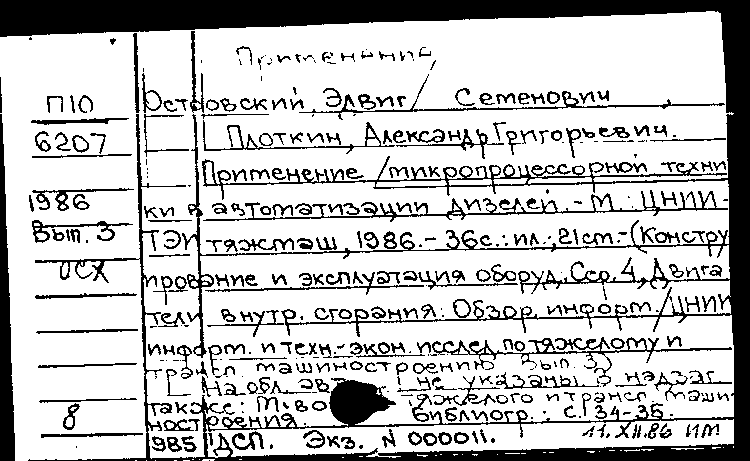 Применение
П10 Островский, Эдвиг / Семенович,
6207 Плоткин, Александр Григорьевич.
Применение /микропроцессорной техни
1986 ки в автоматизации дизелей. - М.: ЦНИИ-
Вып. 3 ТЭИтяжмаш, 1986. - 36с.: ил.; 21см. - (Констру
ОСХ ирование и эксплуатация оборуд. Сер. 4, Двига
тели внутр. сгорания: Обзор. информ. / ЦНИИ
информ. и техн.-экон. исслед. по тяжелому и
трансп. машиностроению Вып. 3)
На обл. авт. не указаны В надзаг.
также: М-во тяжелого и трансп. маши
8 ностроения. Библиогр.: с. 34-35.
985 ДСП. Экз. N 000011. 11.XII.86 ИМ